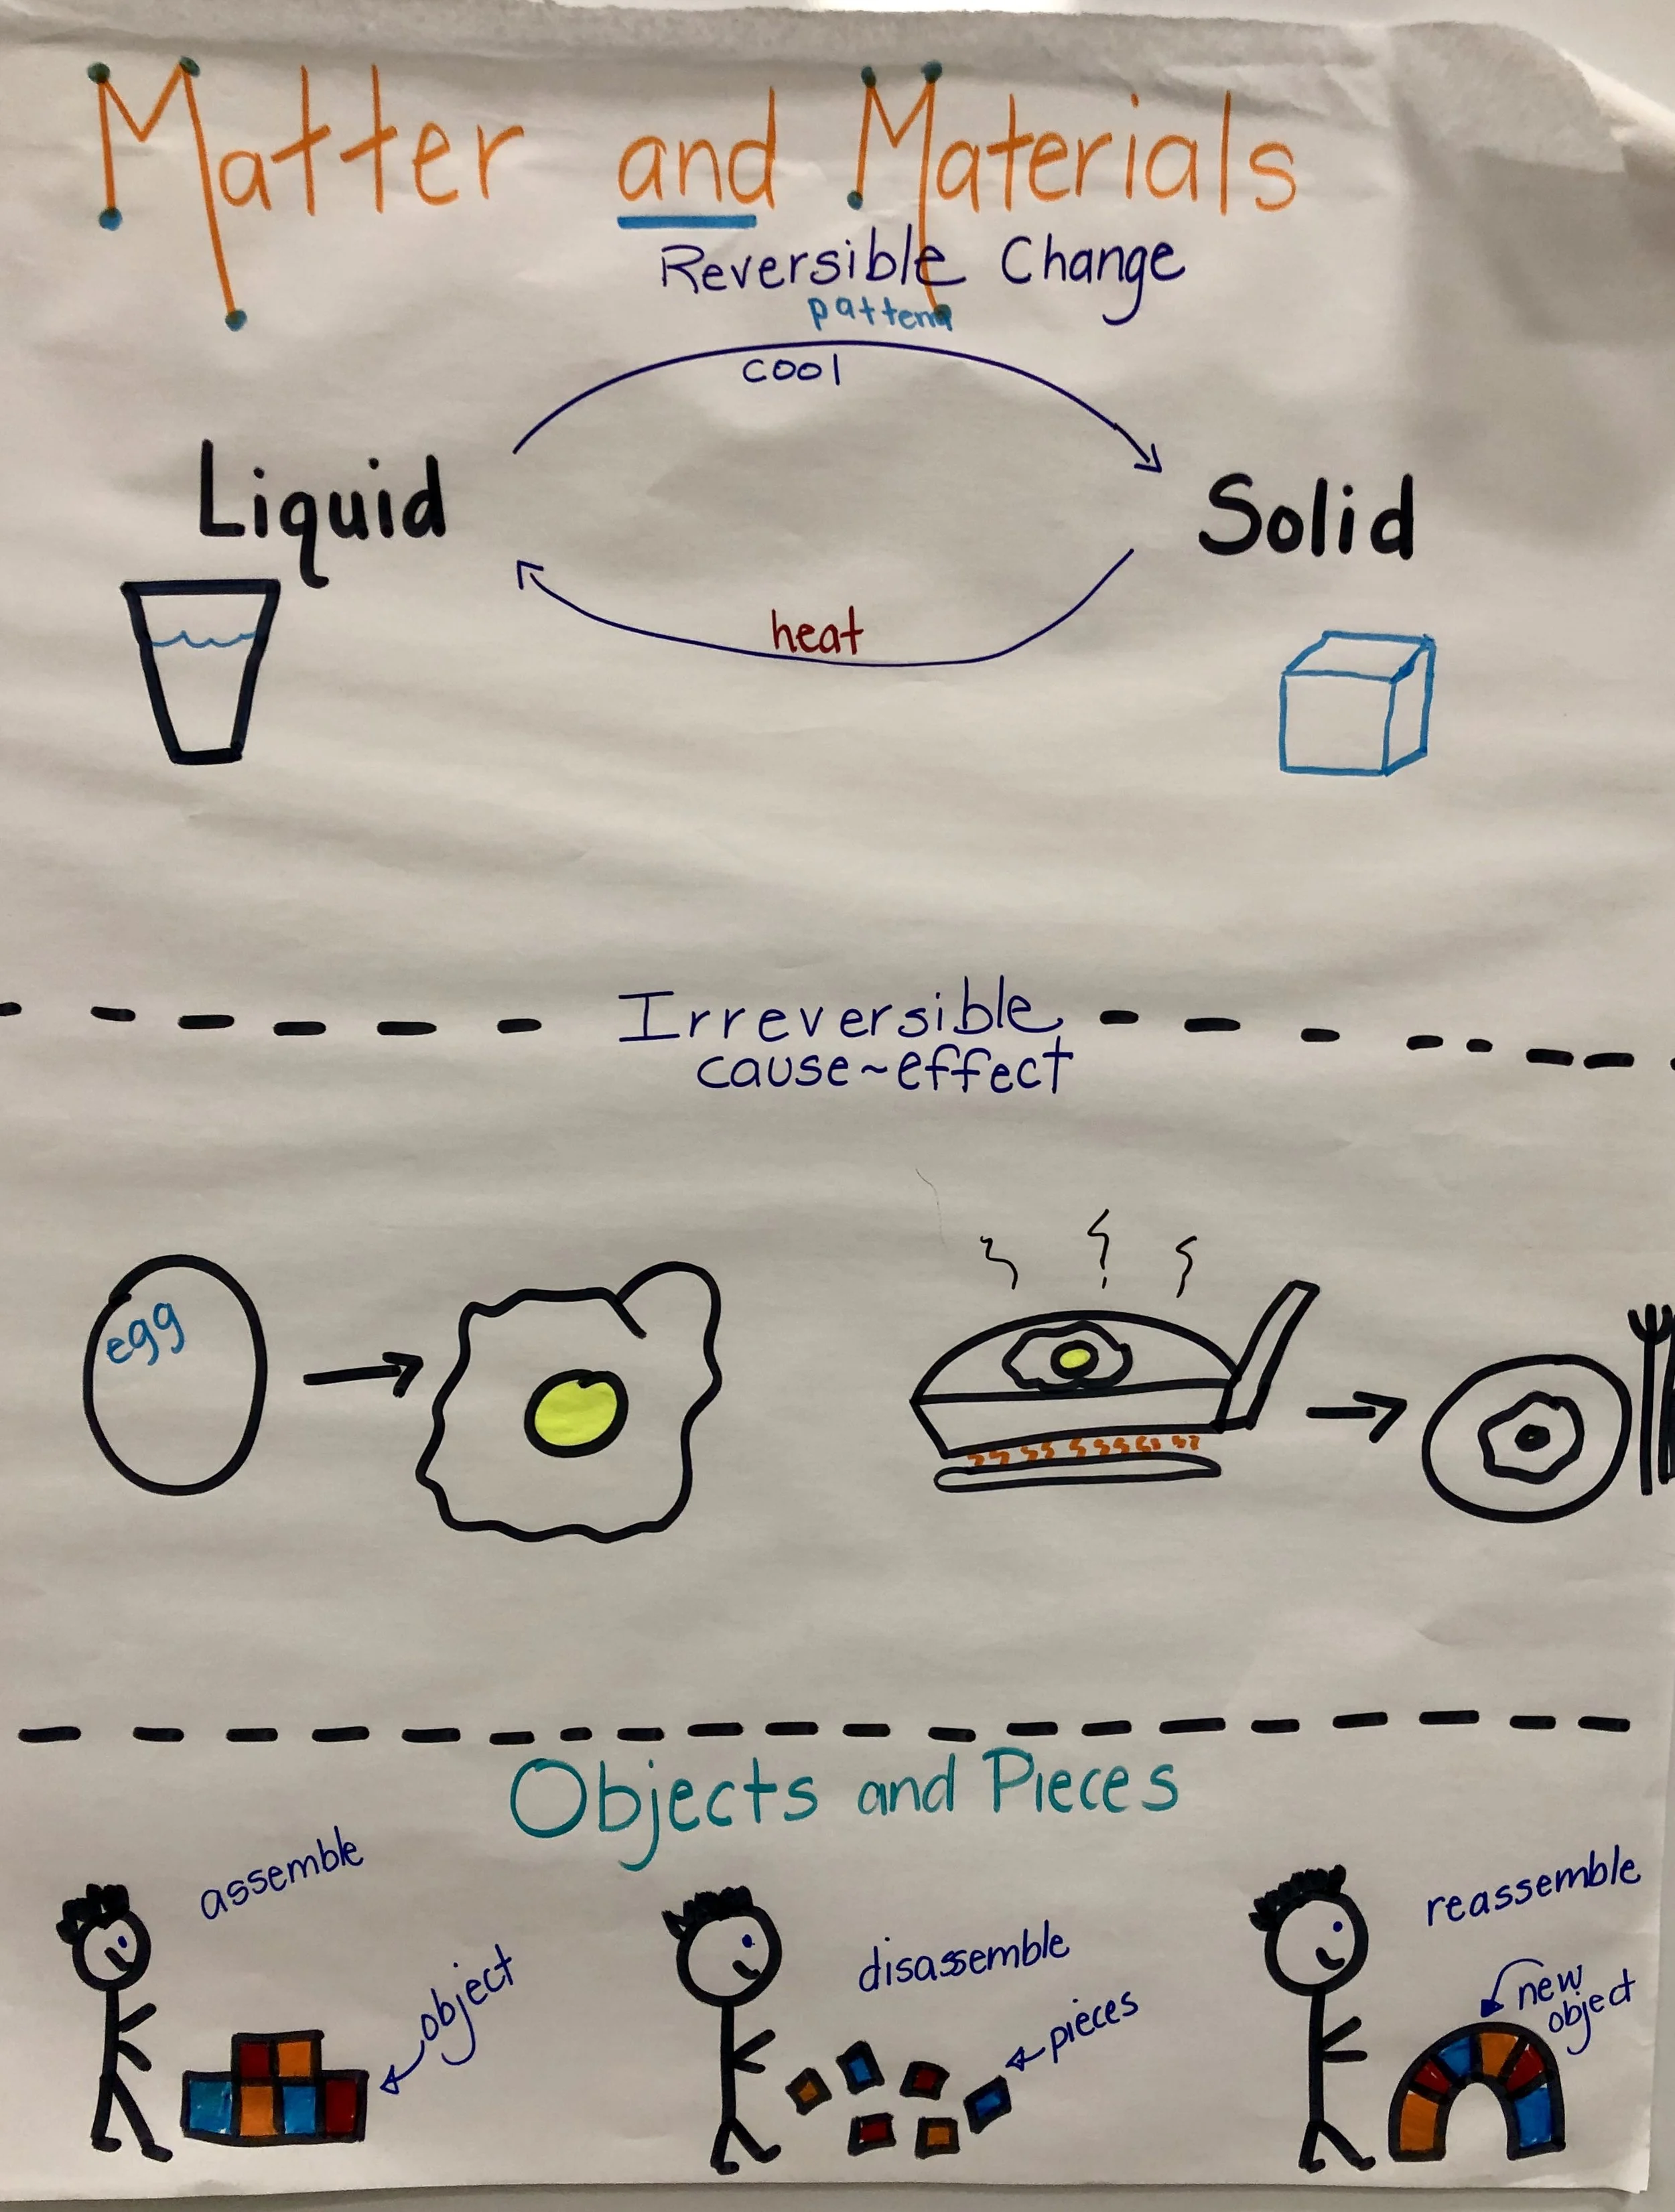 Matter and Materials
Reversible Change
pattern
cool
Liquid
Solid
heat
Irreversible
cause~effect
egg
Objects and Pieces
assemble
object
disassemble
pieces
reassemble
new
object